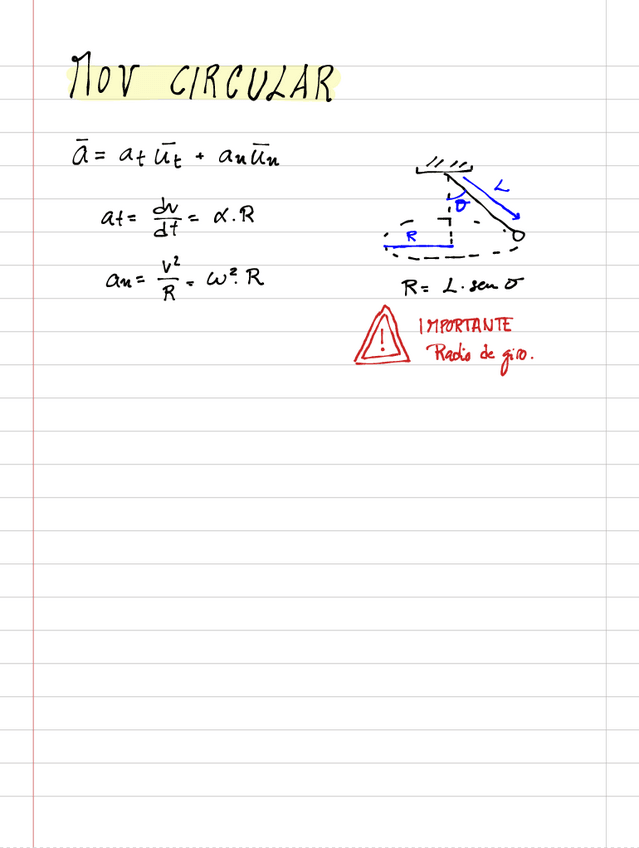 MOV CIRCULAR
ā = at ūt + an ūn
at = dv/dt = α.R
an = v²/R = ω².R
L
θ
R
R = L.sen θ
!
IMPORTANTE
Radio de giro.